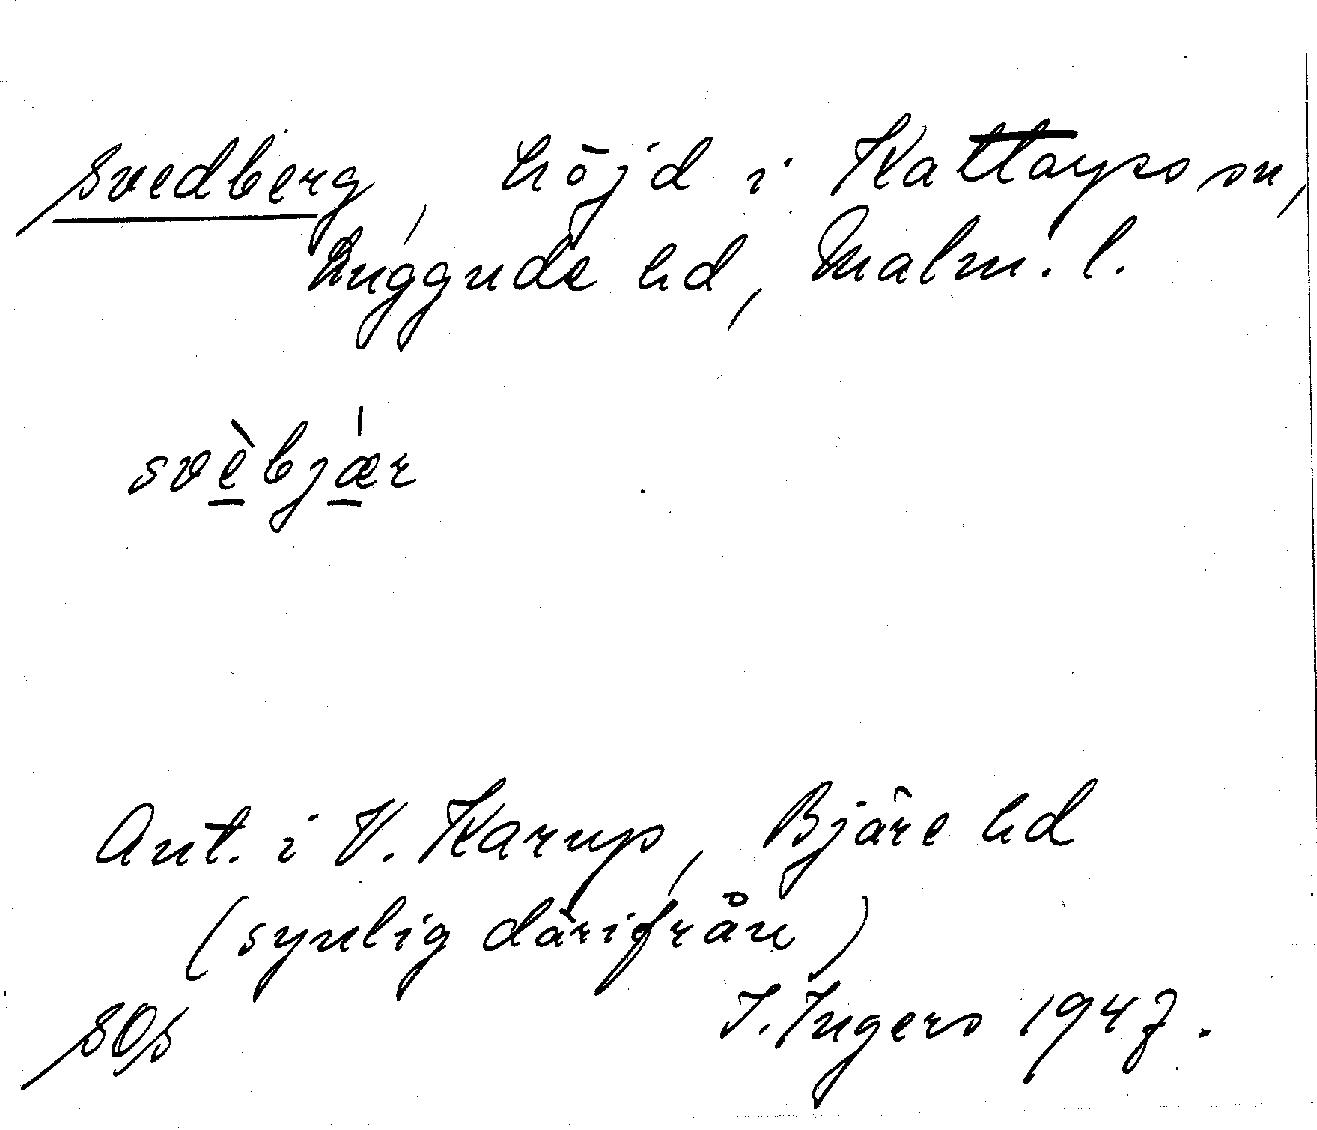 Svedberg, höjd i Kattarps sn,
Luggude hd, Malm. l.
svèbjǽr
Ant. i V. Karup, Bjäre hd
(synlig därifrån)
SOS
I. Ingers 1947.